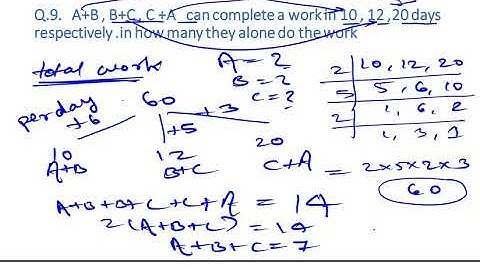 Q.9. A+B , B+C, C +A can complete a work in 10 , 12 ,20 days
respectively .in how many they alone do the work
total work
A = 2
B = 2
C = ?
2 10, 12, 20
5 5, 6, 10
2 1, 6, 2
1, 3, 1
= 2×5×2×3
60
per day 60
+6 +5 +3
10 12 20
A+B B+C C+A
A+B+B+C+C+A = 14
2(A+B+C) = 14
A+B+C = 7